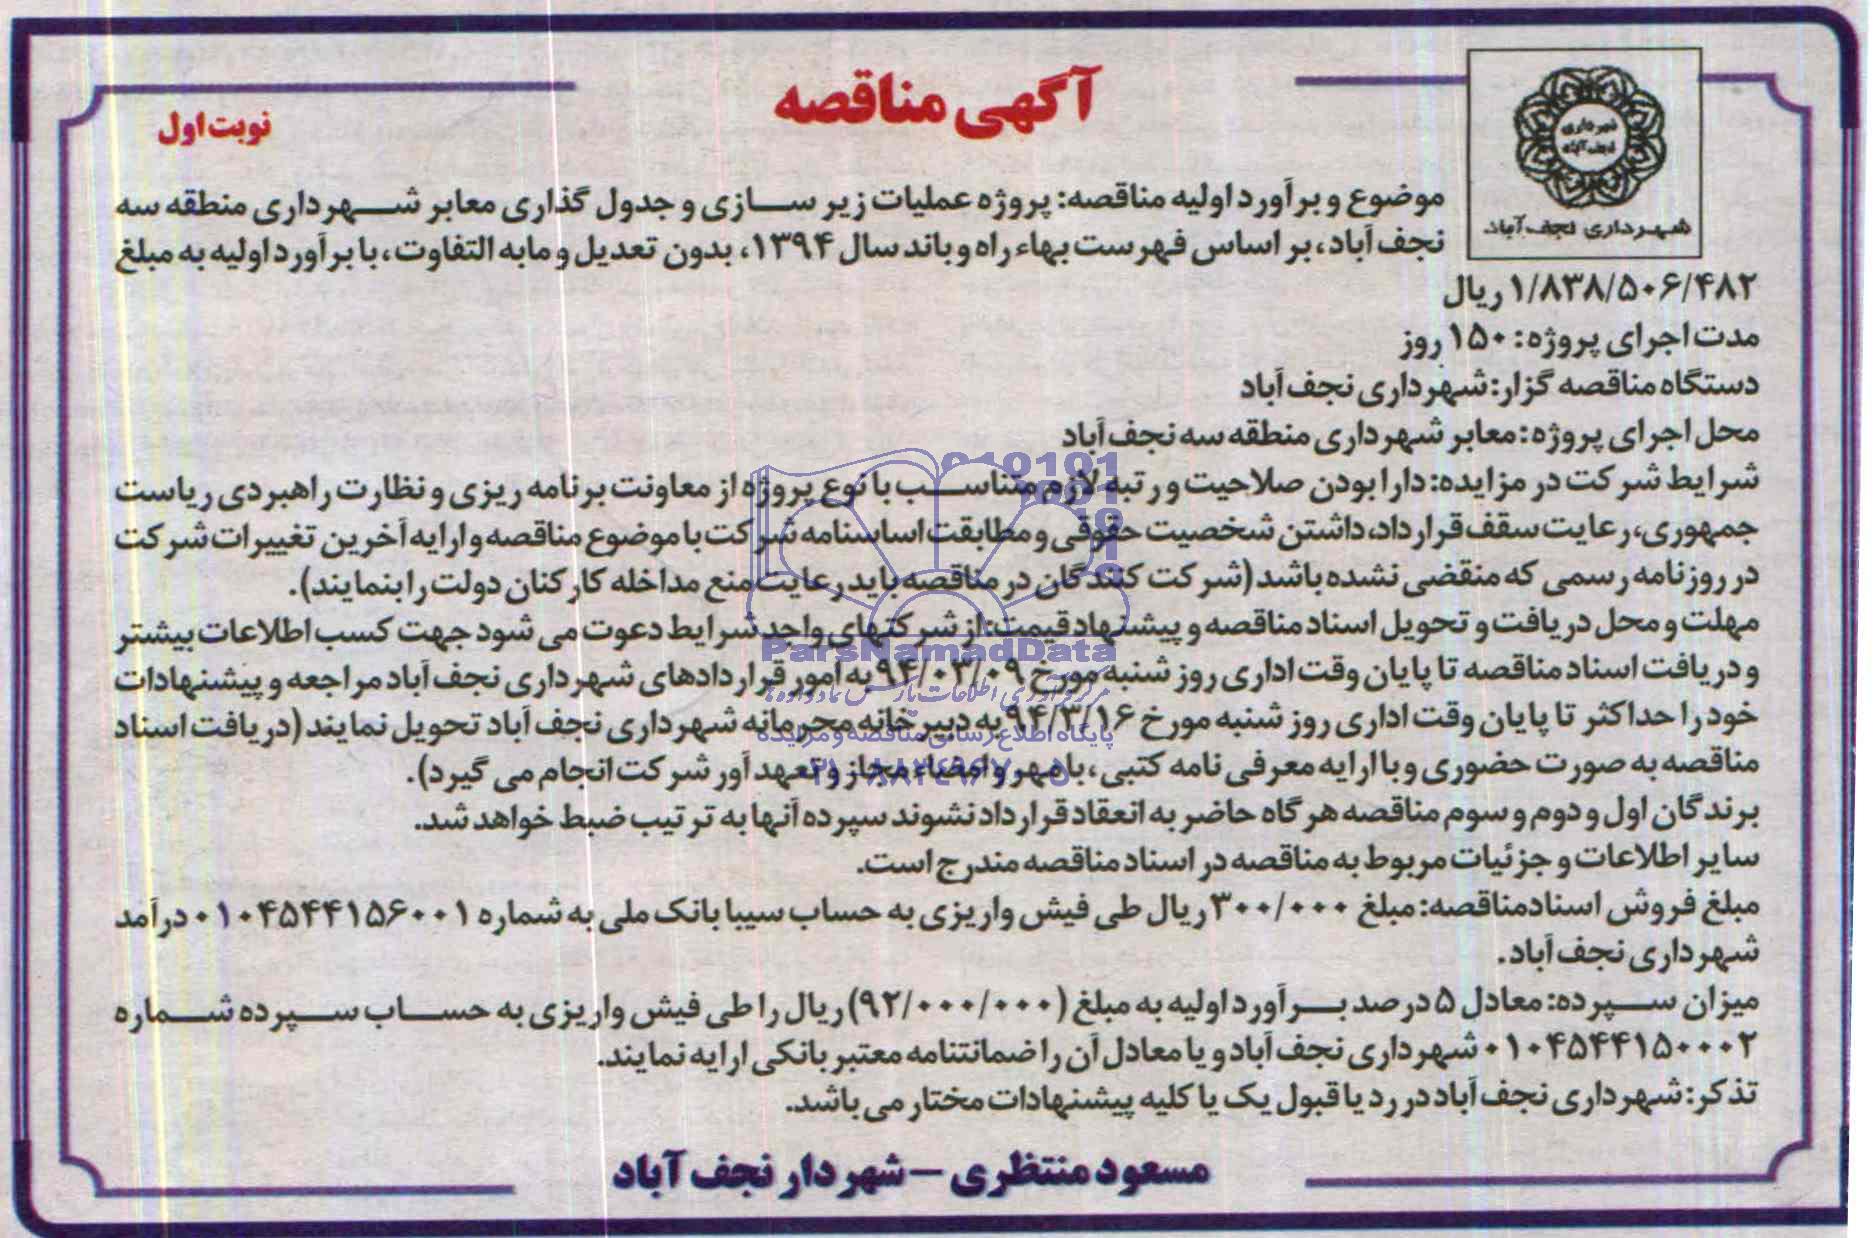 آگهی مناقصه
نوبت اول
شهرداری نجف آباد
شهرداری نجف آباد
موضوع و برآورد اولیه مناقصه: پروژه عملیات زیر سازی و جدول گذاری معابر شهرداری منطقه سه
نجف آباد، بر اساس فهرست بهاء راه و باند سال ۱۳۹۴، بدون تعدیل و مابه التفاوت، با برآورد اولیه به مبلغ
۱/۸۳۸/۵۰۶/۴۸۲ ریال
مدت اجرای پروژه: ۱۵۰ روز
دستگاه مناقصه گزار: شهرداری نجف آباد
محل اجرای پروژه: معابر شهرداری منطقه سه نجف آباد
شرایط شرکت در مزایده: دارا بودن صلاحیت و رتبه لازم متناسب با نوع پروژه از معاونت برنامه ریزی و نظارت راهبردی ریاست
جمهوری، رعایت سقف قرارداد، داشتن شخصیت حقوقی و مطابقت اساسنامه شرکت با موضوع مناقصه و ارایه آخرین تغییرات شرکت
در روزنامه رسمی که منقضی نشده باشد (شرکت کنندگان در مناقصه باید رعایت منع مداخله کارکنان دولت را بنمایند).
مهلت و محل دریافت و تحویل اسناد مناقصه و پیشنهاد قیمت: از شرکتهای واجد شرایط دعوت می شود جهت کسب اطلاعات بیشتر
و دریافت اسناد مناقصه تا پایان وقت اداری روز شنبه مورخ ۹۴/۰۳/۰۹ به امور قراردادهای شهرداری نجف آباد مراجعه و پیشنهادات
خود را حداکثر تا پایان وقت اداری روز شنبه مورخ ۹۴/۳/۱۶ به دبیرخانه محرمانه شهرداری نجف آباد تحویل نمایند (دریافت اسناد
مناقصه به صورت حضوری و با ارایه معرفی نامه کتبی، با مهر و امضاء مجاز و تعهدآور شرکت انجام می گیرد).
برندگان اول و دوم و سوم مناقصه هر گاه حاضر به انعقاد قرارداد نشوند سپرده آنها به ترتیب ضبط خواهد شد.
سایر اطلاعات و جزئیات مربوط به مناقصه در اسناد مناقصه مندرج است.
مبلغ فروش اسناد مناقصه: مبلغ ۳۰۰/۰۰۰ ریال طی فیش واریزی به حساب سیبا بانک ملی به شماره ۰۱۰۴۵۴۴۱۵۶۰۰۱ درآمد
شهرداری نجف آباد.
میزان سپرده: معادل ۵ درصد برآورد اولیه به مبلغ (۹۲/۰۰۰/۰۰۰) ریال را طی فیش واریزی به حساب سپرده شماره
۰۱۰۴۵۴۴۱۵۰۰۰۲ شهرداری نجف آباد و یا معادل آن را ضمانتنامه معتبر بانکی ارایه نمایند.
تذکر: شهرداری نجف آباد در رد یا قبول یک یا کلیه پیشنهادات مختار می باشد.
مسعود منتظری – شهردار نجف آباد
ParsNamadData
پایگاه اطلاع رسانی مناقصه و مزایده